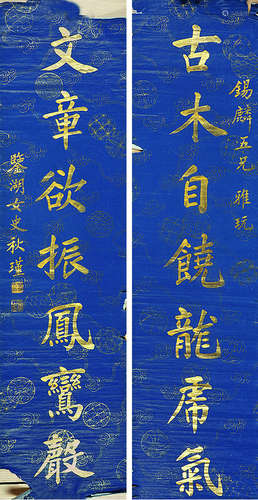 錫麟五兄 雅玩
古木自饒龍虎氣
文章欲振鳳鸞聲
鑒湖女史秋瑾